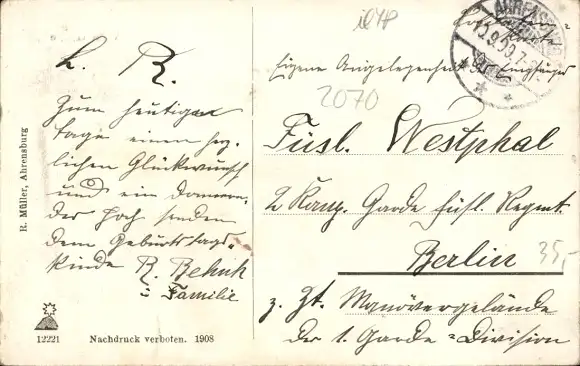 L. R.
Zum heutigen
Tage einen herz-
lichen Glückwunsch
und ein Donnern-
des Hoch senden
dem Geburtstags-
kinde R. Behnk
u Familie
R. Müller, Ahrensburg
12221
Nachdruck verboten. 1908
AHRENSBURG
Eigene Angelegenheit d. Empfängers
2070
Füsl. Westphal
2 Komp. Garde Füsl. Regent.
Berlin
35,-
z. Zt. Manövergelände
der 1. Garde-Division